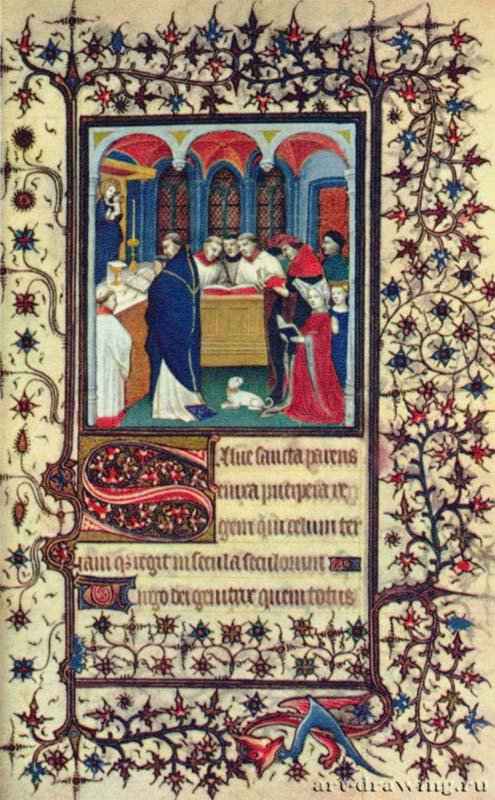 Salve sancta parens
enixa puerpera re
gem qui celum ter
ram q3 regit in secula seculorum
Virgo dei genitrix quem totus
art-drawing.ru